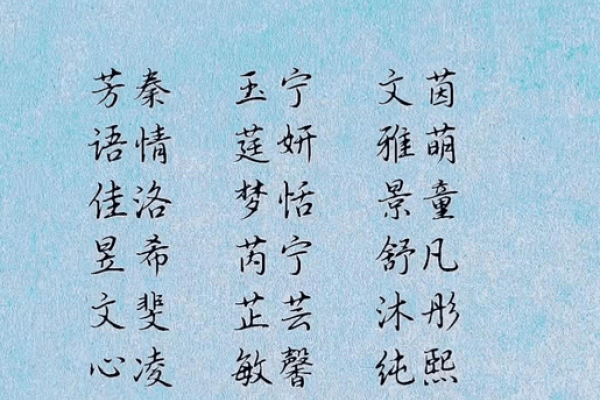 芳秦 玉宁 文茵
语情 莛妍 雅萌
佳洛 梦恬 景童
昱希 芮宁 舒凡
文斐 芷芸 沐彤
心凌 敏馨 纯熙